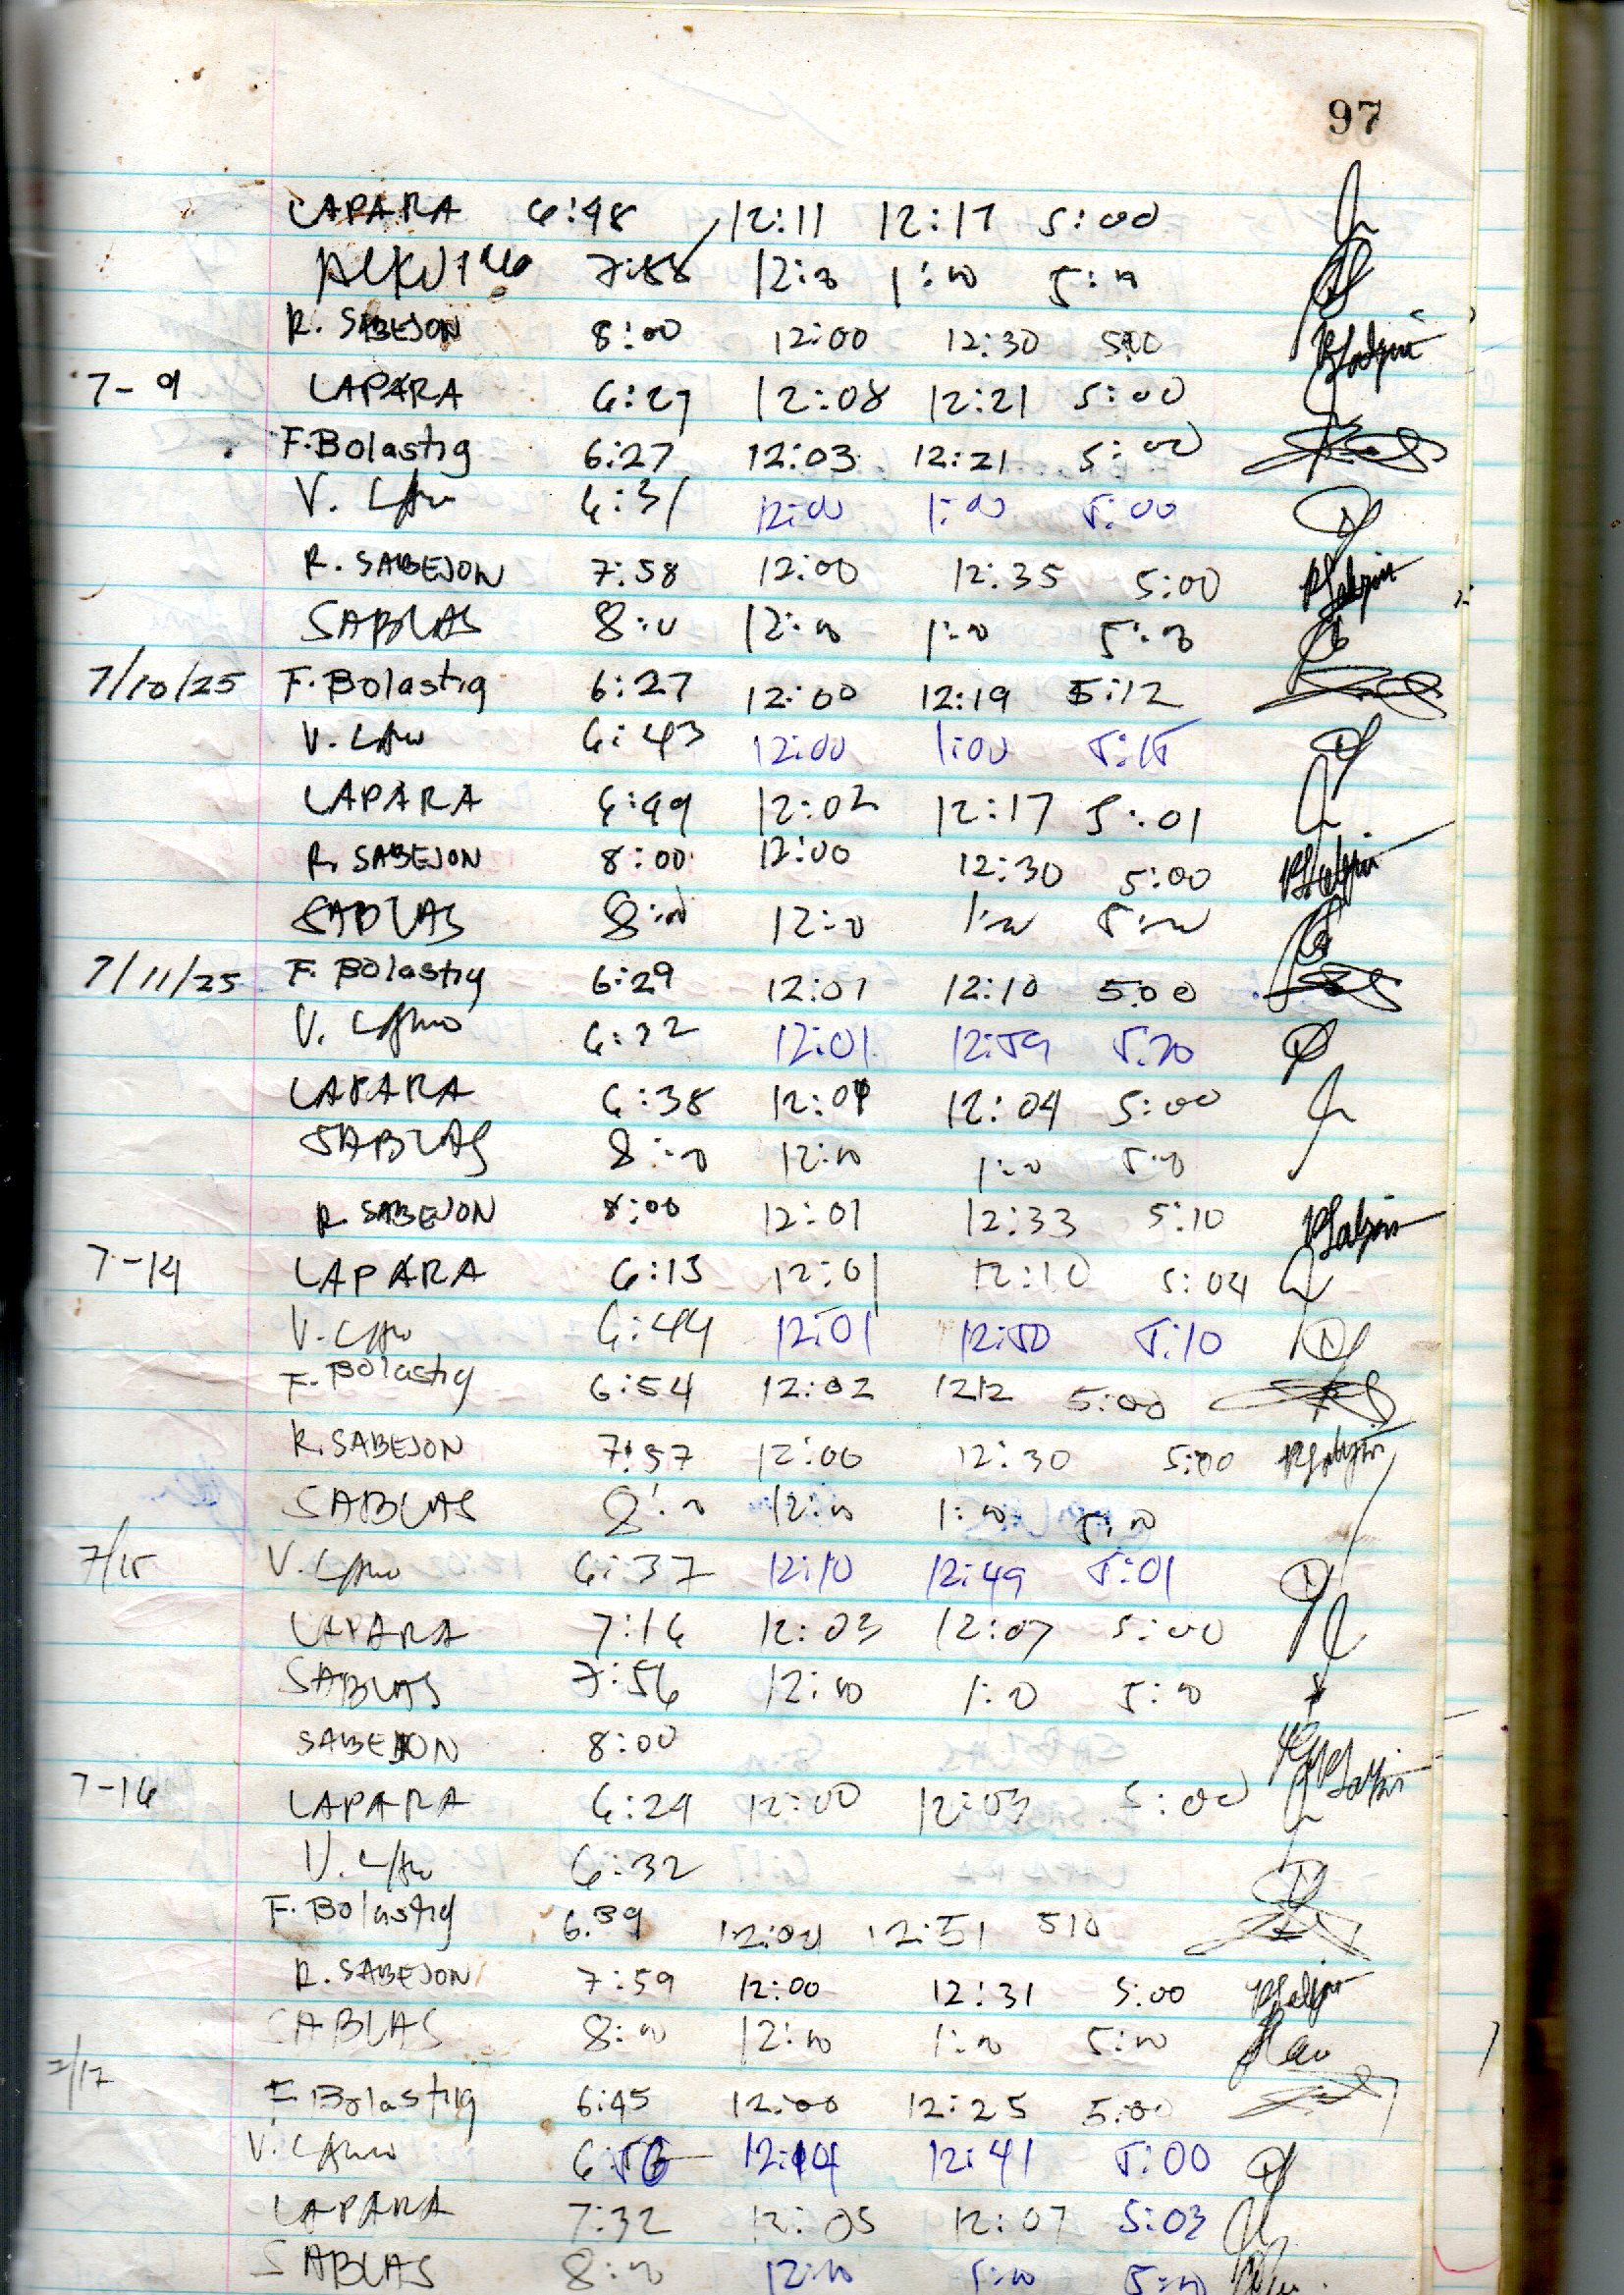 97
LAPARA 6:48 12:11 12:17 5:00
7:58 12:00 1:00 5:00
R. SABEJON 8:00 12:00 12:30 5:00
7-9 LAPARA 6:27 12:08 12:21 5:00
F. Bolastig 6:27 12:03 12:21 5:00
V. 6:31 12:00 1:00 5:00
R. SABEJON 7:58 12:00 12:35 5:00
SABLAS 8:00 12:00 1:00 5:00
7/10/25 F. Bolastig 6:27 12:00 12:19 5:12
V. 6:43 12:00 1:00 5:15
LAPARA 6:49 12:02 12:17 5:01
R. SABEJON 8:00 12:00 12:30 5:00
SABLAS 8:00 12:00 1:00 5:00
7/11/25 F. Bolastig 6:29 12:01 12:10 5:00
V. 6:32 12:01 12:59 5:20
LAPARA 6:38 12:04 5:00
SABLAS 8:00 12:00 1:00 5:00
R. SABEJON 8:00 12:01 12:33 5:10
7-14 LAPARA 6:13 12:01 12:10 5:04
V. 6:44 12:01 12:50 5:10
F. Bolastig 6:54 12:02 1212 5:00
R. SABEJON 7:57 12:00 12:30 5:00
SABLAS 8:00 12:00 1:00 5:00
7/15 V. 6:37 12:10 12:49 5:01
LAPARA 7:16 12:03 12:07 5:00
SABLAS 7:56 12:00 1:00 5:00
SABEJON 8:00
7-16 LAPARA 6:29 12:00 12:03 5:00
V. 6:32
F. Bolastig 6:39 12:51 510
R. SABEJON 7:59 12:00 12:31 5:00
SABLAS 8:00 12:00 1:00 5:00
7/17
F Bolastig 6:45 12:00 12:25 5:00
V. 12:14 12:41 5:00
LAPARA 7:32 12:05 12:07 5:03
SABLAS 8:00 12:00 1:00 5:00